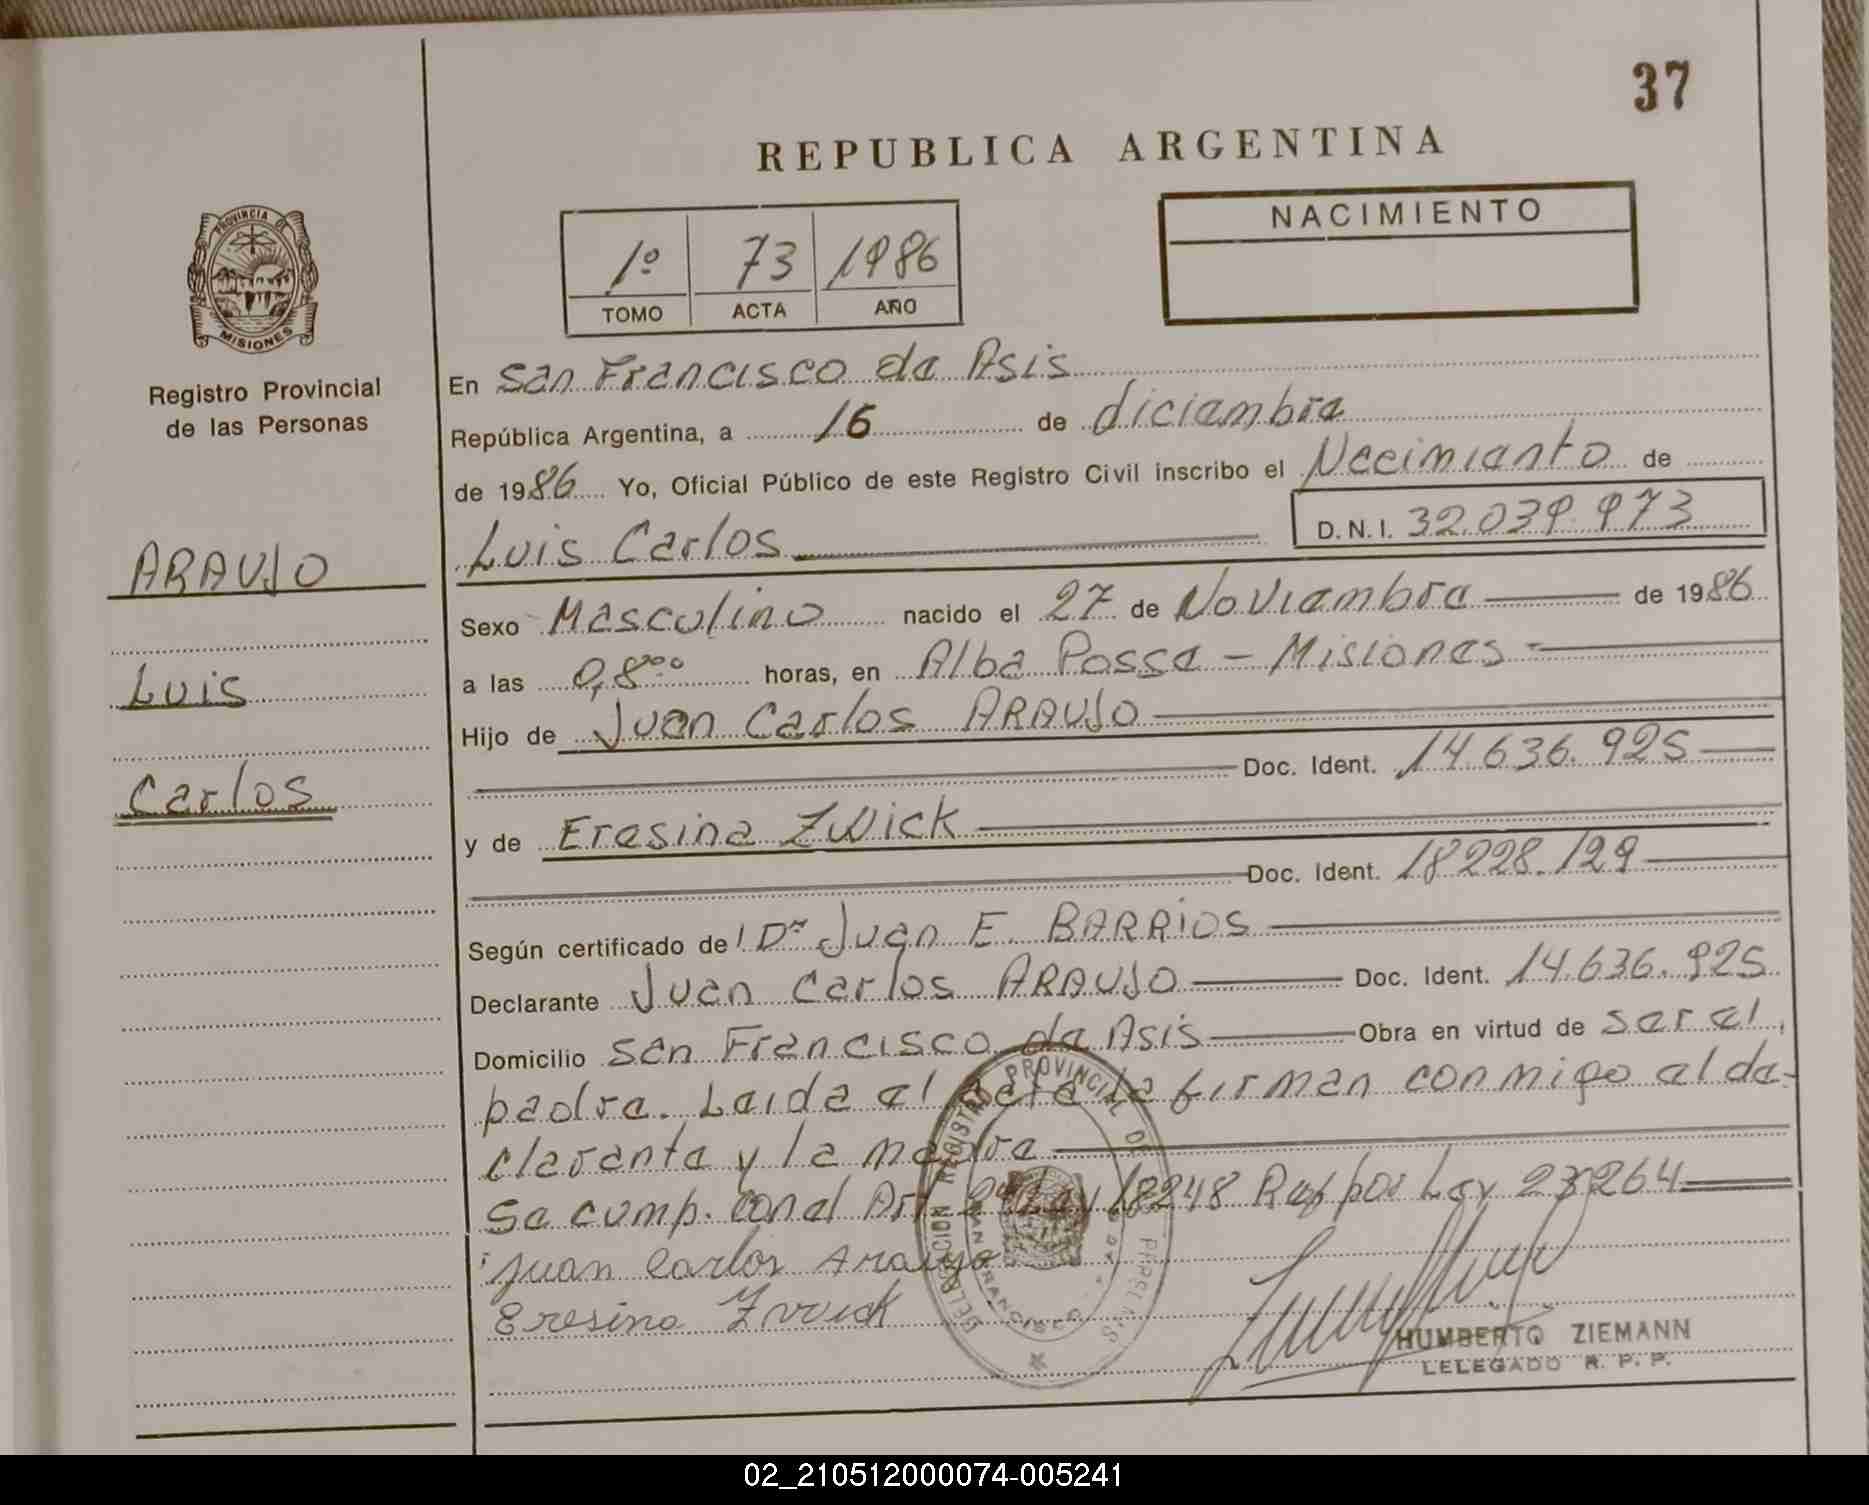 37
REPUBLICA ARGENTINA
PROVINCIA DE
MISIONES
Registro Provincial
de las Personas
1º 73 1986
TOMO ACTA AÑO
NACIMIENTO
ARAUJO
Luis
Carlos
En San Francisco de Asis
República Argentina, a 16 de diciembre
de 1986 Yo, Oficial Público de este Registro Civil inscribo el Nacimiento de
Luis Carlos D.N.I. 32.039.973
Sexo Masculino nacido el 27 de Noviembre de 1986
a las 0,8°° horas, en Alba Posse - Misiones
Hijo de Juan Carlos ARAUJO
Doc. Ident. 14.636.925
y de Eresina Zwick
Doc. Ident. 18.228.129
Según certificado de Dr Juan E. BARRIOS
Declarante Juan Carlos ARAUJO Doc. Ident. 14.636.925
Domicilio San Francisco de Asis Obra en virtud de ser el
padre. Leida el acta la firman conmigo el de-
clarante y la madre
Se cump. con el Art. 2º Ley 18248 Ley 23264
Juan Carlos Araujo
Eresina Zwick
DELEGACION REGISTRO PROVINCIAL DE LAS PERSONAS
SAN FRANCISCO
HUMBERTO ZIEMANN
LELEGADO R. P. P.
02_210512000074-005241